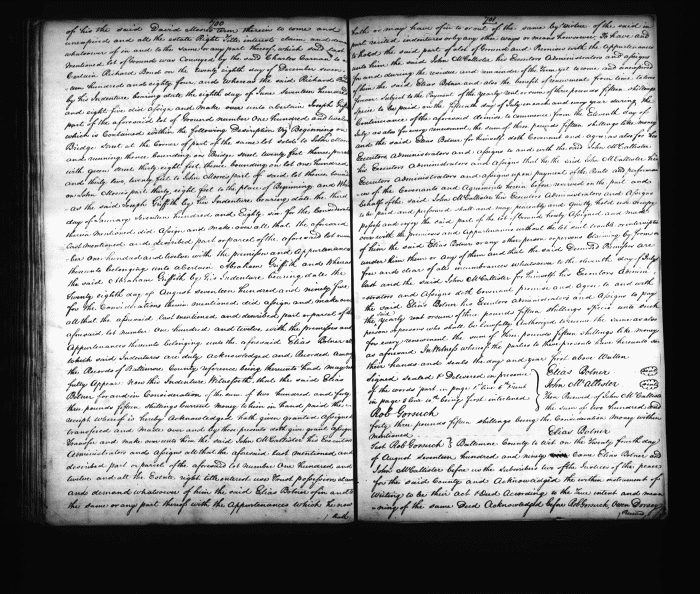 700
of his the said David Moore's term therein to come and
unexpired and all the estate Right Title interest claim and demand
whatsoever of in and to the same or any part thereof, which said last
mentioned lot of Ground was Conveyed by the said Charles Carnan to a
Certain Richard Bond on the twenty eighth day of December seven
teen hundred and eighty four, and Whereas the said Richard Bond
by his Indenture bearing date the eighth day of June seventeen hundred
and eighty five did Assign and make over unto a Certain Joseph Griffith
part of the aforesaid lot of Ground number One hundred and twelve
which is Contained within the following Description Viz Beginning on
Bridge Street at the Corner of part of the same lot sold to John Moore
and running thence bounding on Bridge Street twenty feet thence parallel
with green street thirty eight feet, thence bounding on lot one hundred
and thirty two, twenty feet to John Moores part of said lot thence bound
on John Moores part thirty eight feet to the place of Beginning and Where
as the said Joseph Griffith by his Indenture bearing date the third
day of January Seventeen hundred and Eighty six for the Consideration
therein mentioned did Assign and make over all that the aforesaid
last mentioned and described part or parcel of the aforesaid lot num
ber One hundred and twelve with the premises and Appurtenances
thereunto belonging unto a Certain Abraham Griffith and Whereas
the said Abraham Griffith by his Indenture bearing date the
Twenty eighth day of August seventeen hundred and ninety
for the Considerations therein mentioned did Assign and make over
all that the aforesaid last mentioned and described part or parcel of the
aforesaid lot number One hundred and twelve, with the premises and
Appurtenances thereunto belonging unto the aforesaid Elias Bolner
which said Indentures are duly Acknowledged and Recorded Among
the Records of Baltimore County reference being thereunto had may more
fully Appear Now this Indenture Witnesseth that the said Elias
Bolner for and in Consideration of the sum of two hundred and forty
three pounds fifteen shillings Current money to him in hand paid the
receipt whereof is hereby Acknowledged hath given granted Assigned
transfered and made over and by these presents doth give grant Assign
Transfer and make over unto him the said John McCallister his Executors
Administrators and Assigns all that the aforesaid last mentioned and
described part or parcel of the aforesaid lot Number One hundred and
twelve and all the Estate right title interest use Trust possession claim
and demand whatsoever of him the said Elias Bolner of in and to
the same or any part thereof with the Appurtenances which he now
hath
701
hath or may have of in to or out of the same by virtue of the said in
part recited indentures or by any other ways or means howsoever To have and
to hold the said part of a lot of Ground and Premises with the Appurtenances
unto him the said John McCallister his Executors Administrators and Assigns
for and during the residue and remainder of the term yet to come and unexpired
of him the said Elias Bolner and also the benefit of renewment from time to time
forever Subject to the Payment of the yearly rent or sum of three pounds fifteen shillings
Specie to be paid on the Fifteenth day of July in each and every year during the
Continuance of the aforesaid demise to commence from the Eleventh day of
July as also for every renewment the sum of three pounds fifteen shillings like money
and the said Elias Bolner for himself doth Covenant and agree as also for his
Executors Administrators and Assigns to and with the said John McCallister
his Executors Administrators and Assigns that he the said John McCallister his
Executors Administrators and Assigns upon payment of the Rents and performan
ce of the Covenants and Agreements herein before reserved on the part and
behalf of the said John McCallister his Executors Administrators and Assigns
to be paid and performed shall and may peaceably and Quietly hold use occupy
possess and enjoy the said part of the lot of Ground hereby Assigned and made
over with the premises and Appurtenances without the let suit trouble interruption
of him the said Elias Bolner or any other person or persons claiming by from or
under him them or any of them and that the said Demised Premises are
free and clear of all incumbrances whatsoever to the eleventh day of July
last and the said John McCallister for himself his Executors Admini
strators and Assigns doth Covenant promise and agree to and with
the said Elias Bolner his Executors Administrators and Assigns to pay
the yearly rent or sum of three pounds fifteen shillings Specie unto such
person or persons who shall be lawfully Authorized to receive the same as also
for every renewment the sum of three pounds fifteen shillings like money
as aforesaid In Witness whereof the parties to these presents have hereunto set
their hands and seals the day and year first above Written
Signed Sealed & Delivered in presence
of the words part in page 1st line 6th first
in page 2 line 10th being first interlined
Rob Gorsuch
Elias Bolner
John McAllister
Then Received of John McCallister
the sum of two hundred and
forty three pounds fifteen shillings being the Consideration money within
mentioned
Elias Bolner
Test Rob Gorsuch } Baltimore County to wit on the Twenty fourth day
of August seventeen hundred and ninety Came Elias Bolner and
John McCallister before us the Subscribers two of the Justices of the peace
for the said County and Acknowledged the within instrument of
Writing to be their Act & Deed According to the true intent and mea
ning of the same Deed Acknowledged before Rob Gorsuch, Owen Dorsey